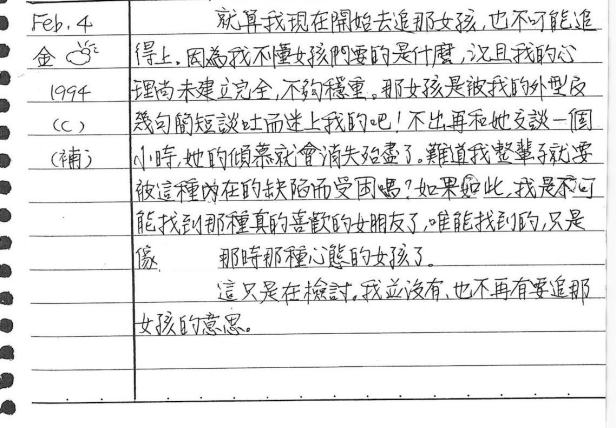 Feb. 4 就算我現在開始去追那女孩,也不可能追
金 得上.因為我不懂女孩們要的是什麼,況且我的心
1994 理尚未建立完全,不夠穩重。那女孩是被我的外型及
(C) 幾句簡短談吐而迷上我的吧!不出再和她交談一個
(補) 小時,她的傾慕就會消失殆盡了。難道我整輩子就要
被這種內在的缺陷而受困嗎?如果如此,我是不可
能找到那種真的喜歡的女朋友了,唯能找到的,只是
像 那時那種心態的女孩了。
這只是在檢討。我並沒有、也不再有要追那
女孩的意思。